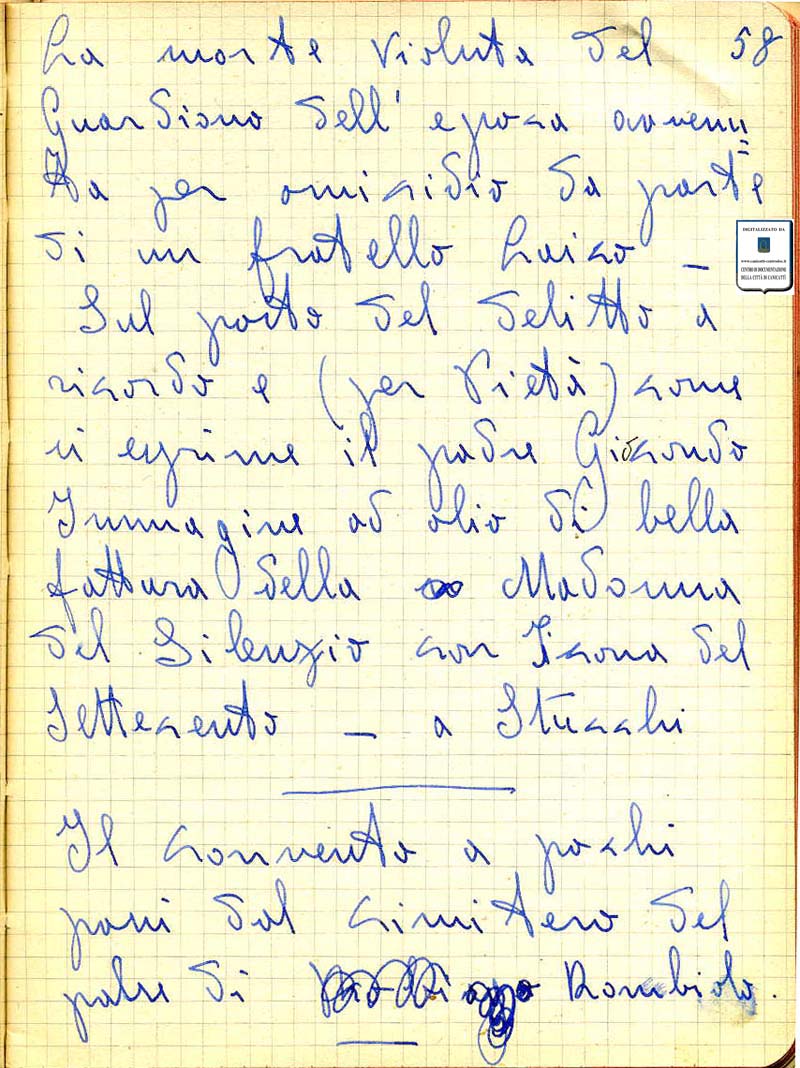 La morte violenta del 58
Guardiano dell' epoca avvenu=
ta per omicidio da parte
di un fratello laico _
Sul posto del delitto a
ricordo e (per Pietà) come
si esprime il padre Giocondo
Immagine ad olio di bella
fattura della Madonna
del Silenzio con Icona del
Settecento _ a Stucchi
Il convento a pochi
passi dal cimitero del
paese di Rombiolo.
DIGITALIZZATO DA
www.canicatti-centrodoc.it
CENTRO DI DOCUMENTAZIONE
DELLA CITTÀ DI CANICATTÌ